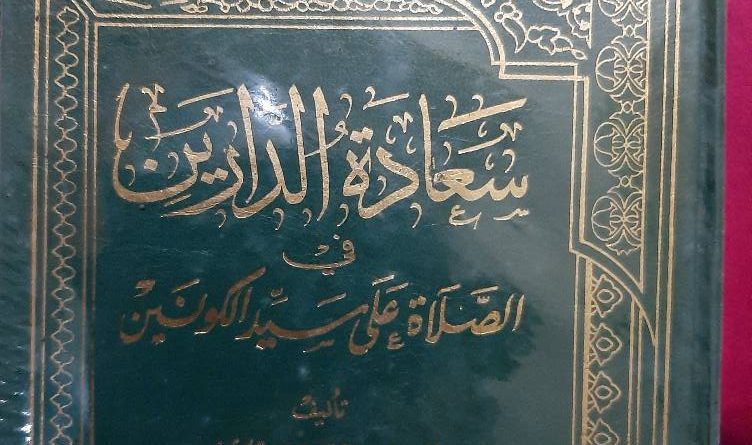 سَعَادَةُ الدَّارَيْن
فِي
الصَّلَاةِ عَلَى سَيِّدِ الكَونَيْن
تأليف